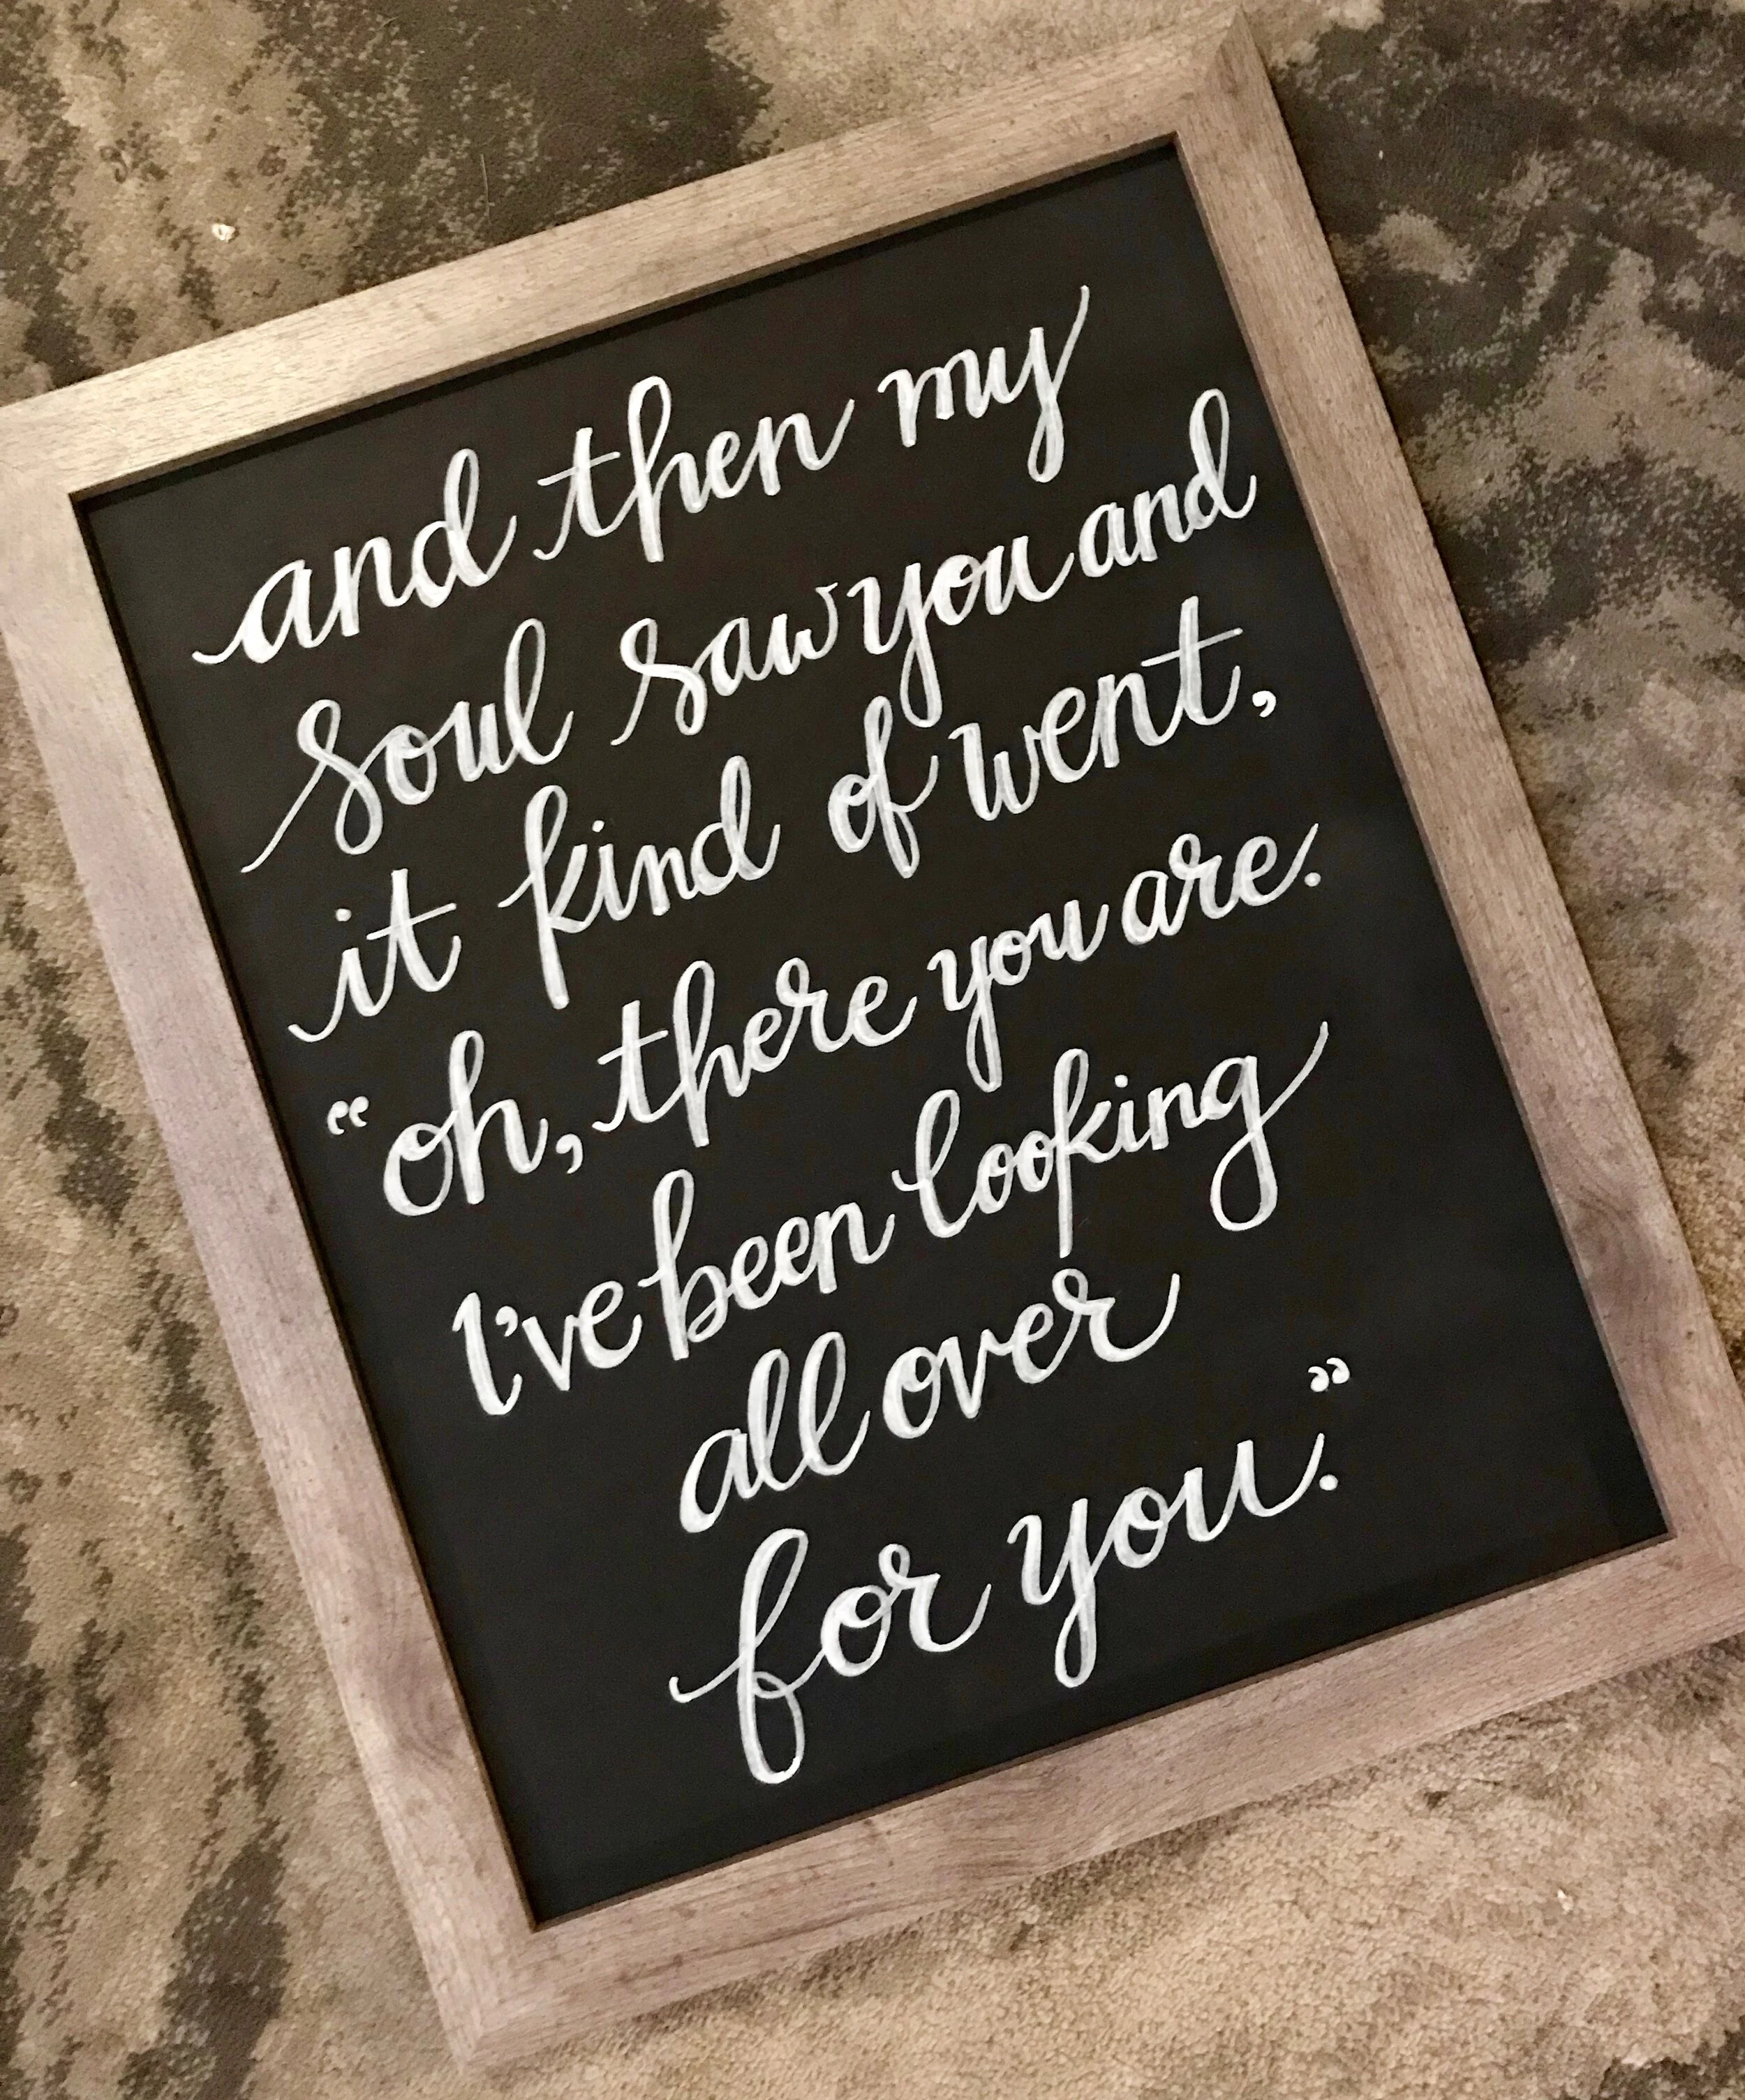 and then my
soul saw you and
it kind of went,
“oh, there you are.
I've been looking
all over
for you.”